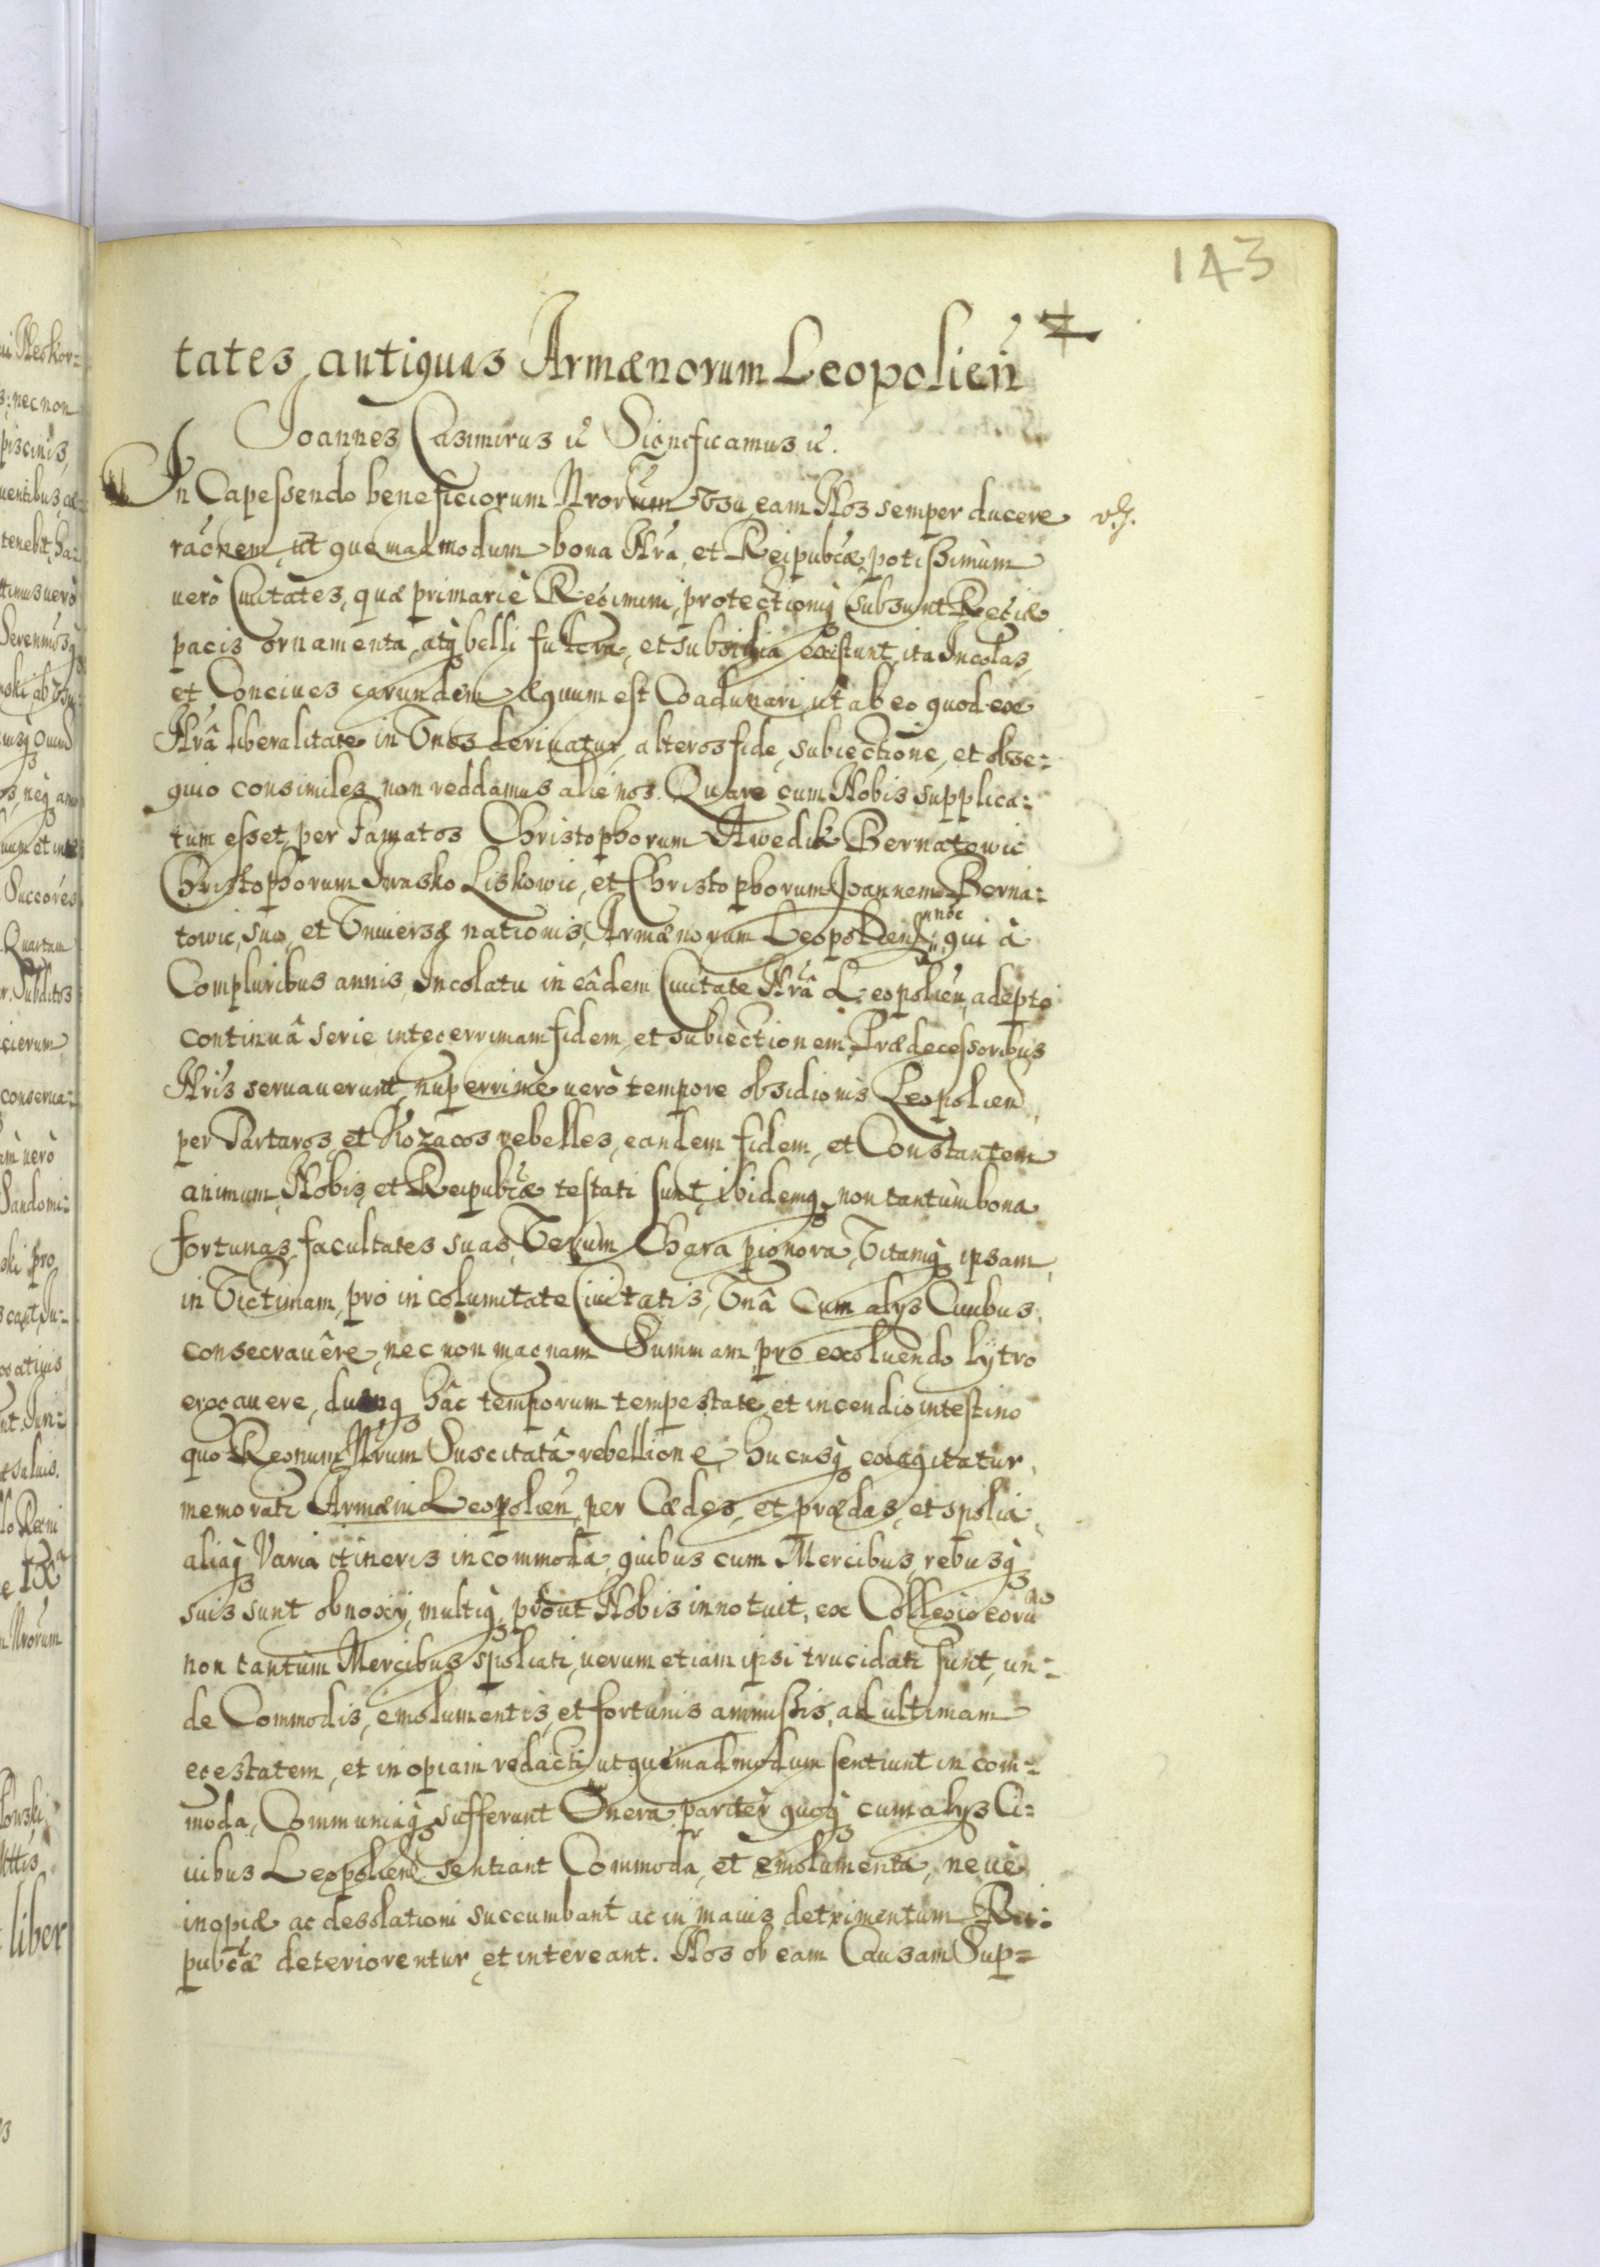 143
tates antiquas Armænorum Leopolien̄
Joannes Casimirus &c̄ Significamus &c̄.
In Capessendo beneficiorum Nrorum Vsu, eam Nos semper ducere
raōnem, ut quemadmodum bona Nrā, et Reipubcæ, potissimùm
uerò Ciuitates, quæ primariè Regimini, protectioniq̧ subsunt Regiæ
pacis ornamenta, atq̧ belli fulcra, et subsidia existunt, ita Incolas,
et Conciues earundem æquum est Coadunari, ut ab eo quod ex
Nrâ liberalitate in Vnos deriuatur, alteros fide, subiectione, et obse-
quio consimiles non reddamus alienos. Quare cum Nobis supplica-
tum esset, per Famatos Christophorum Awedik Bernatowic
Christophorum Iwasko Liskowic, et Christophorum Joannem Berna-
towic, suo, et Vniversæ nationis, Armænorum Leopolien nōe, qui à
Compluribus annis, Incolatu in eâdem Ciuitate Nrâ Leopolien̄, adepto
continuâ serie integerrimam fidem, et subiectionem, Prædecessoribus
Nris seruauerunt, nuperrimè uerò tempore obsidionis Leopolien
per Tartaros, et Kozacos rebelles, eandem fidem, et Constantem
animum, Nobis, et Reipubcæ testati sunt, ibidemq̧ non tantùm bona
fortunas, facultates suas, Verum Chara pignora, Vitamq̧ ipsam,
in Victimam, pro incolumitate Ciuitatis, Vnâ Cum alys Ciuibus
consecrauêre, nec non magnam Summam, pro exoluendo lytro
erogauere, dumq̧ hâc temporum tempestate, et incendio intestino
quo Regnum Nrum Suscitatâ rebellione, hucusq̧ exagitatur,
memorati Armæni Leopolien̄, per Cædes, et prædas, et spolia,
aliaq̧ Varia itineris incommoda, quibus cum Mercibus, rebusq̧
suis sunt obnoxij, multiq̧, prout Nobis innotuit, ex Collegio eorū
non tantùm Mercibus spoliati, uerum etiam ipsi trucidati sunt, un-
de Commodis, emolumentis, et fortunis ammissis, ad ultimam
egestatem, et inopiam redacti, ut quemadmodum sentiunt incom-
moda, Communiaq̧ sufferunt Onera, pariter quoq̧ cum alys Ci-
uibus Leopolien sentiant Commoda, et emolumenta, neuè
inopiæ ac desolationi succumbant, ac in maius detrimentum Rei-
pubcæ deteriorentur, et intereant. Nos ob eam Causam Sup-